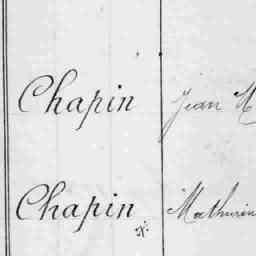 Chapin Jean M
Chapin Mathurin
N.